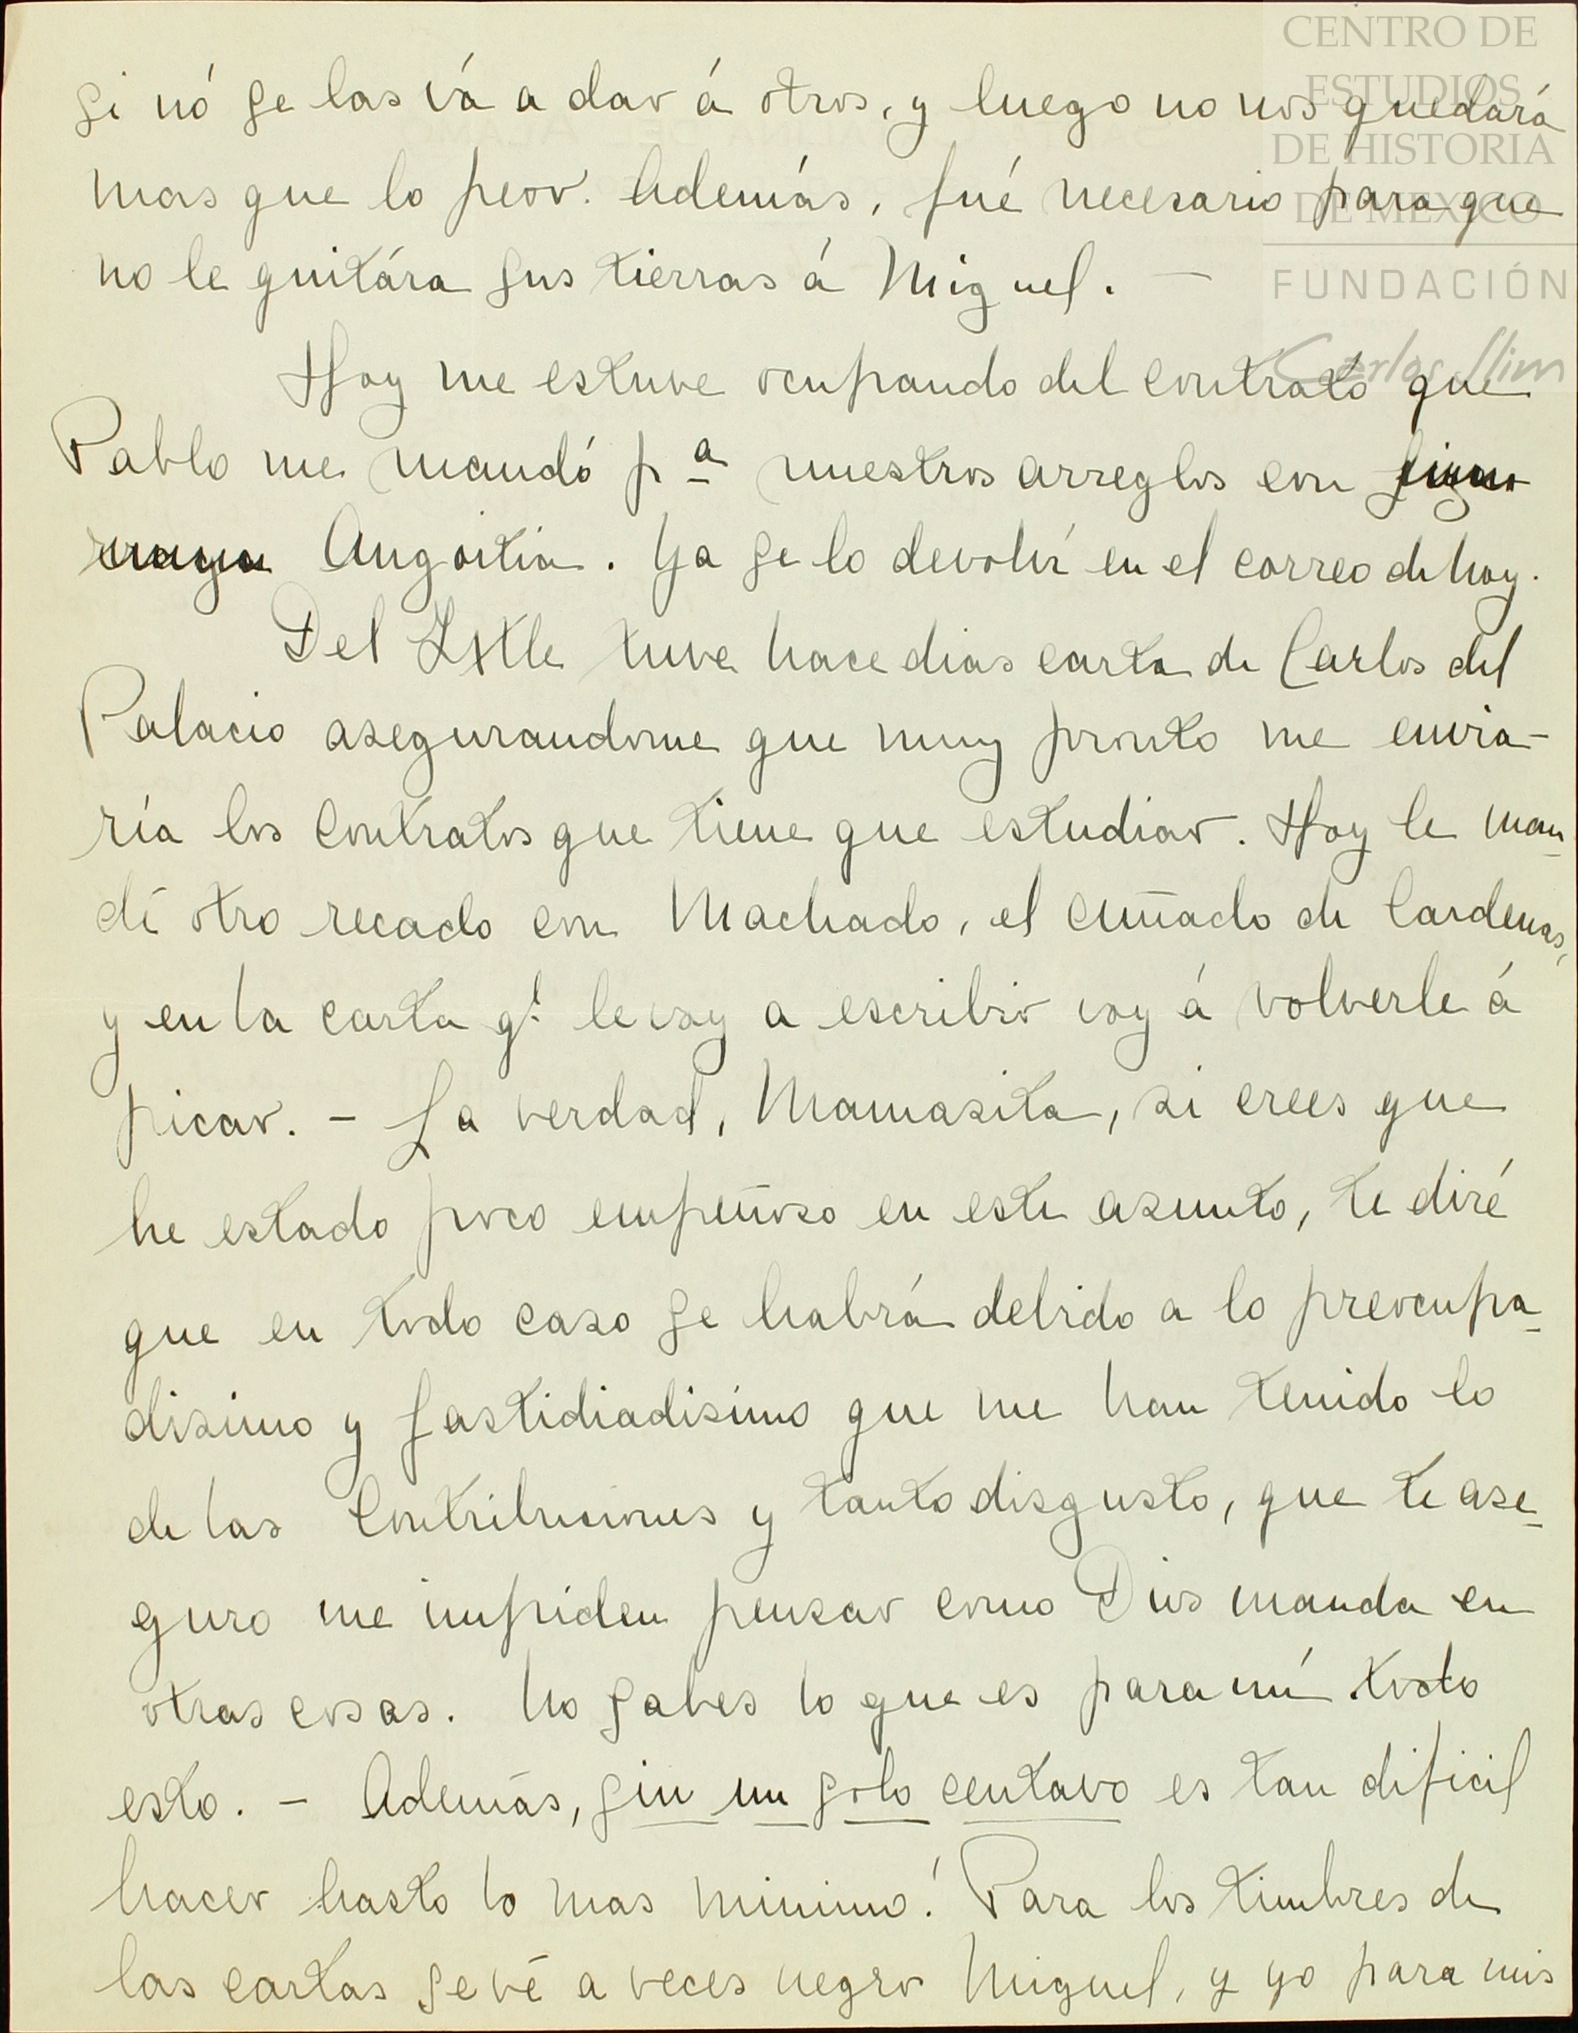 CENTRO DE
ESTUDIOS
DE HISTORIA
DE MEXICO
FUNDACIÓN
Carlos Slim
si nó se las vá a dar á otros, y luego no nos quedará
mas que lo peor. Además, fué necesario para que
no le quitára sus tierras á Miguel. —
Hoy me estuve ocupando del contrato que
Pablo me mandó pª nuestros arreglos con
Angoitia. Ya se lo devolví en el correo de hoy.
Del Ixtle tuve hace dias carta de Carlos del
Palacio asegurandome que muy pronto me envia-
ría los contratos que tiene que estudiar. Hoy le man-
dé otro recado con Machado, el cuñado de Cardenas,
y en la carta q.e le voy a escribir voy á volverle á
picar. – La verdad, Mamasita, si crees que
he estado poco empeñoso en este asunto, te diré
que en todo caso se habrá debido a lo preocupa-
disimo y fastidiadisimo que me han tenido lo
de las Contribuciones y tanto disgusto, que te ase-
guro me impiden pensar como Dios manda en
otras cosas. No sabes lo que es para mí todo
esto. – Además, sin un solo centavo es tan dificil
hacer hasta lo mas minimo! Para los timbres de
las cartas se vé a veces negro Miguel, y yo para mis